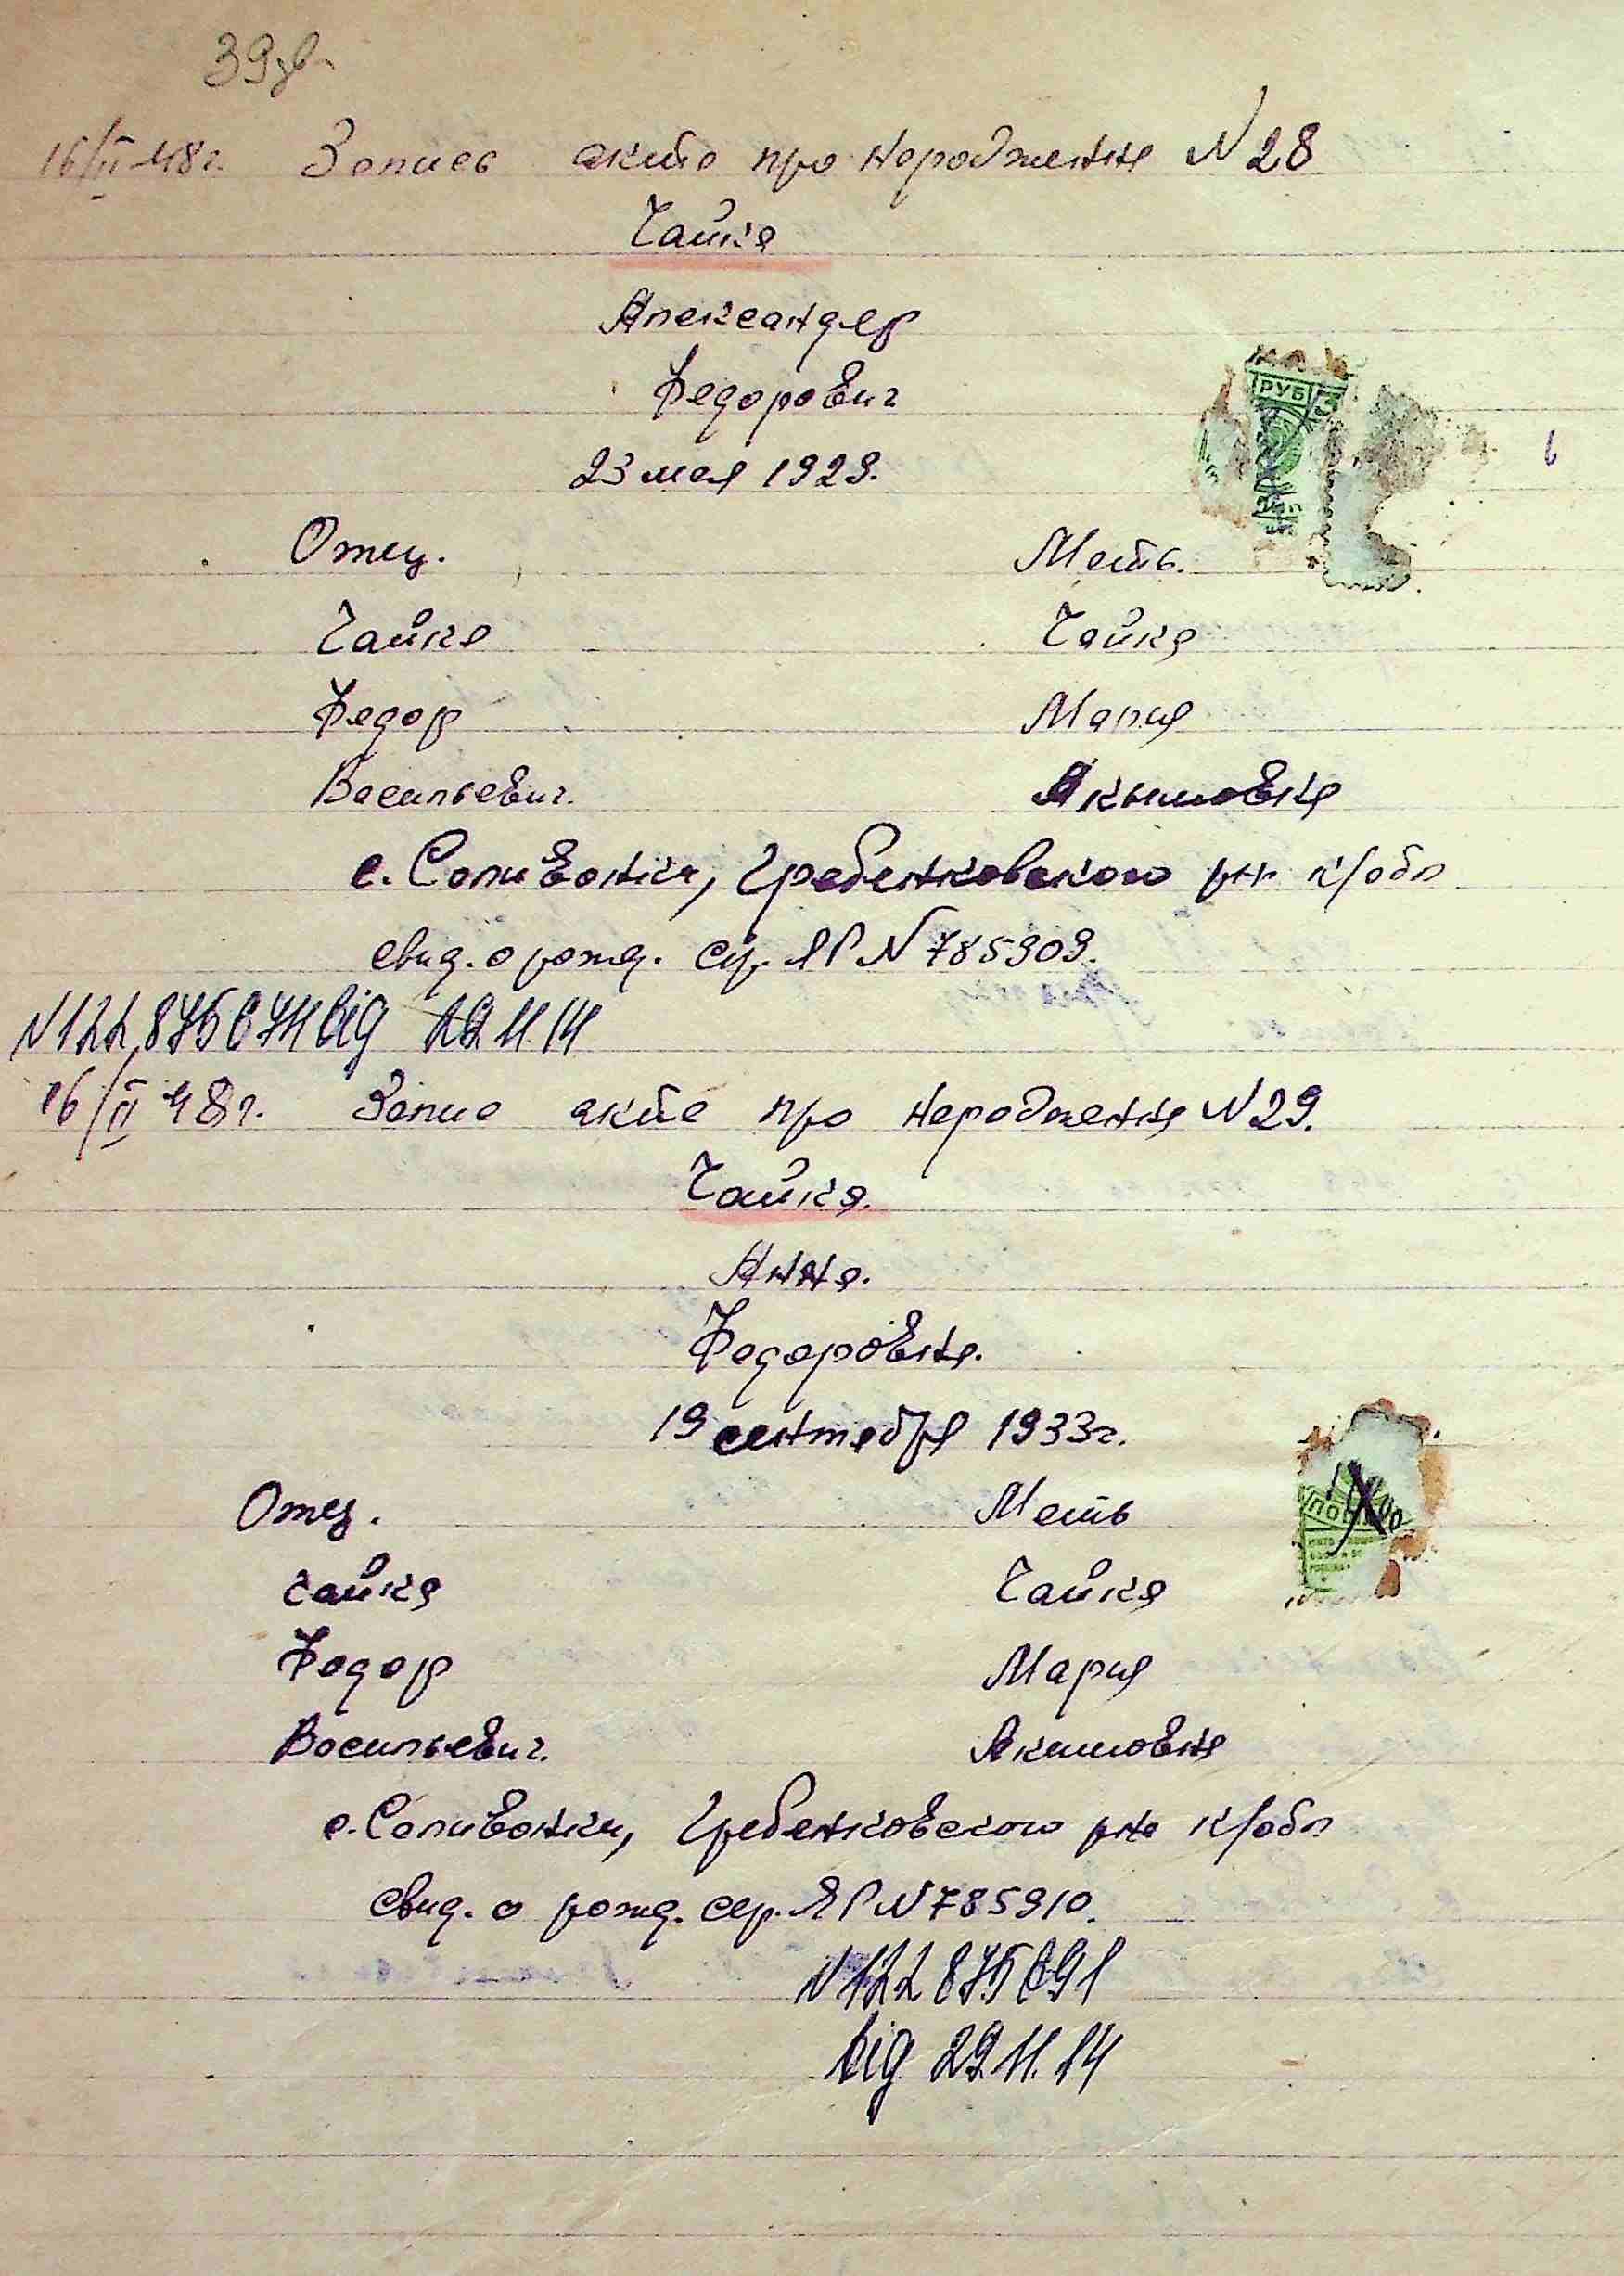 39зв.
16/II 48г. Запись акта про народження N 28
Чайка
Александер
Федорович
23 мая 1929.
РУБ
Отец. Мать.
Чайка Чайка
Федор Мария
Васильевич. Акимовна
с. Соливонки, Гребенковского рн К/обл
свид. о рожд. сер. ЯР N 785909.
N 122 875 674 від 22 11.14
16/II 48г. Запис акта про народження N 29.
Чайка.
Анна.
Федоровна.
19 сентября 1933г.
Отец. Мать
Чайка Чайка
Федор Мария
Васильевич. Акимовна
с. Соливонки, Гребенковского рна К/обл
Свид. о рожд. сер. ЯР N 785910.
N 122 875 691
від 22 11.14